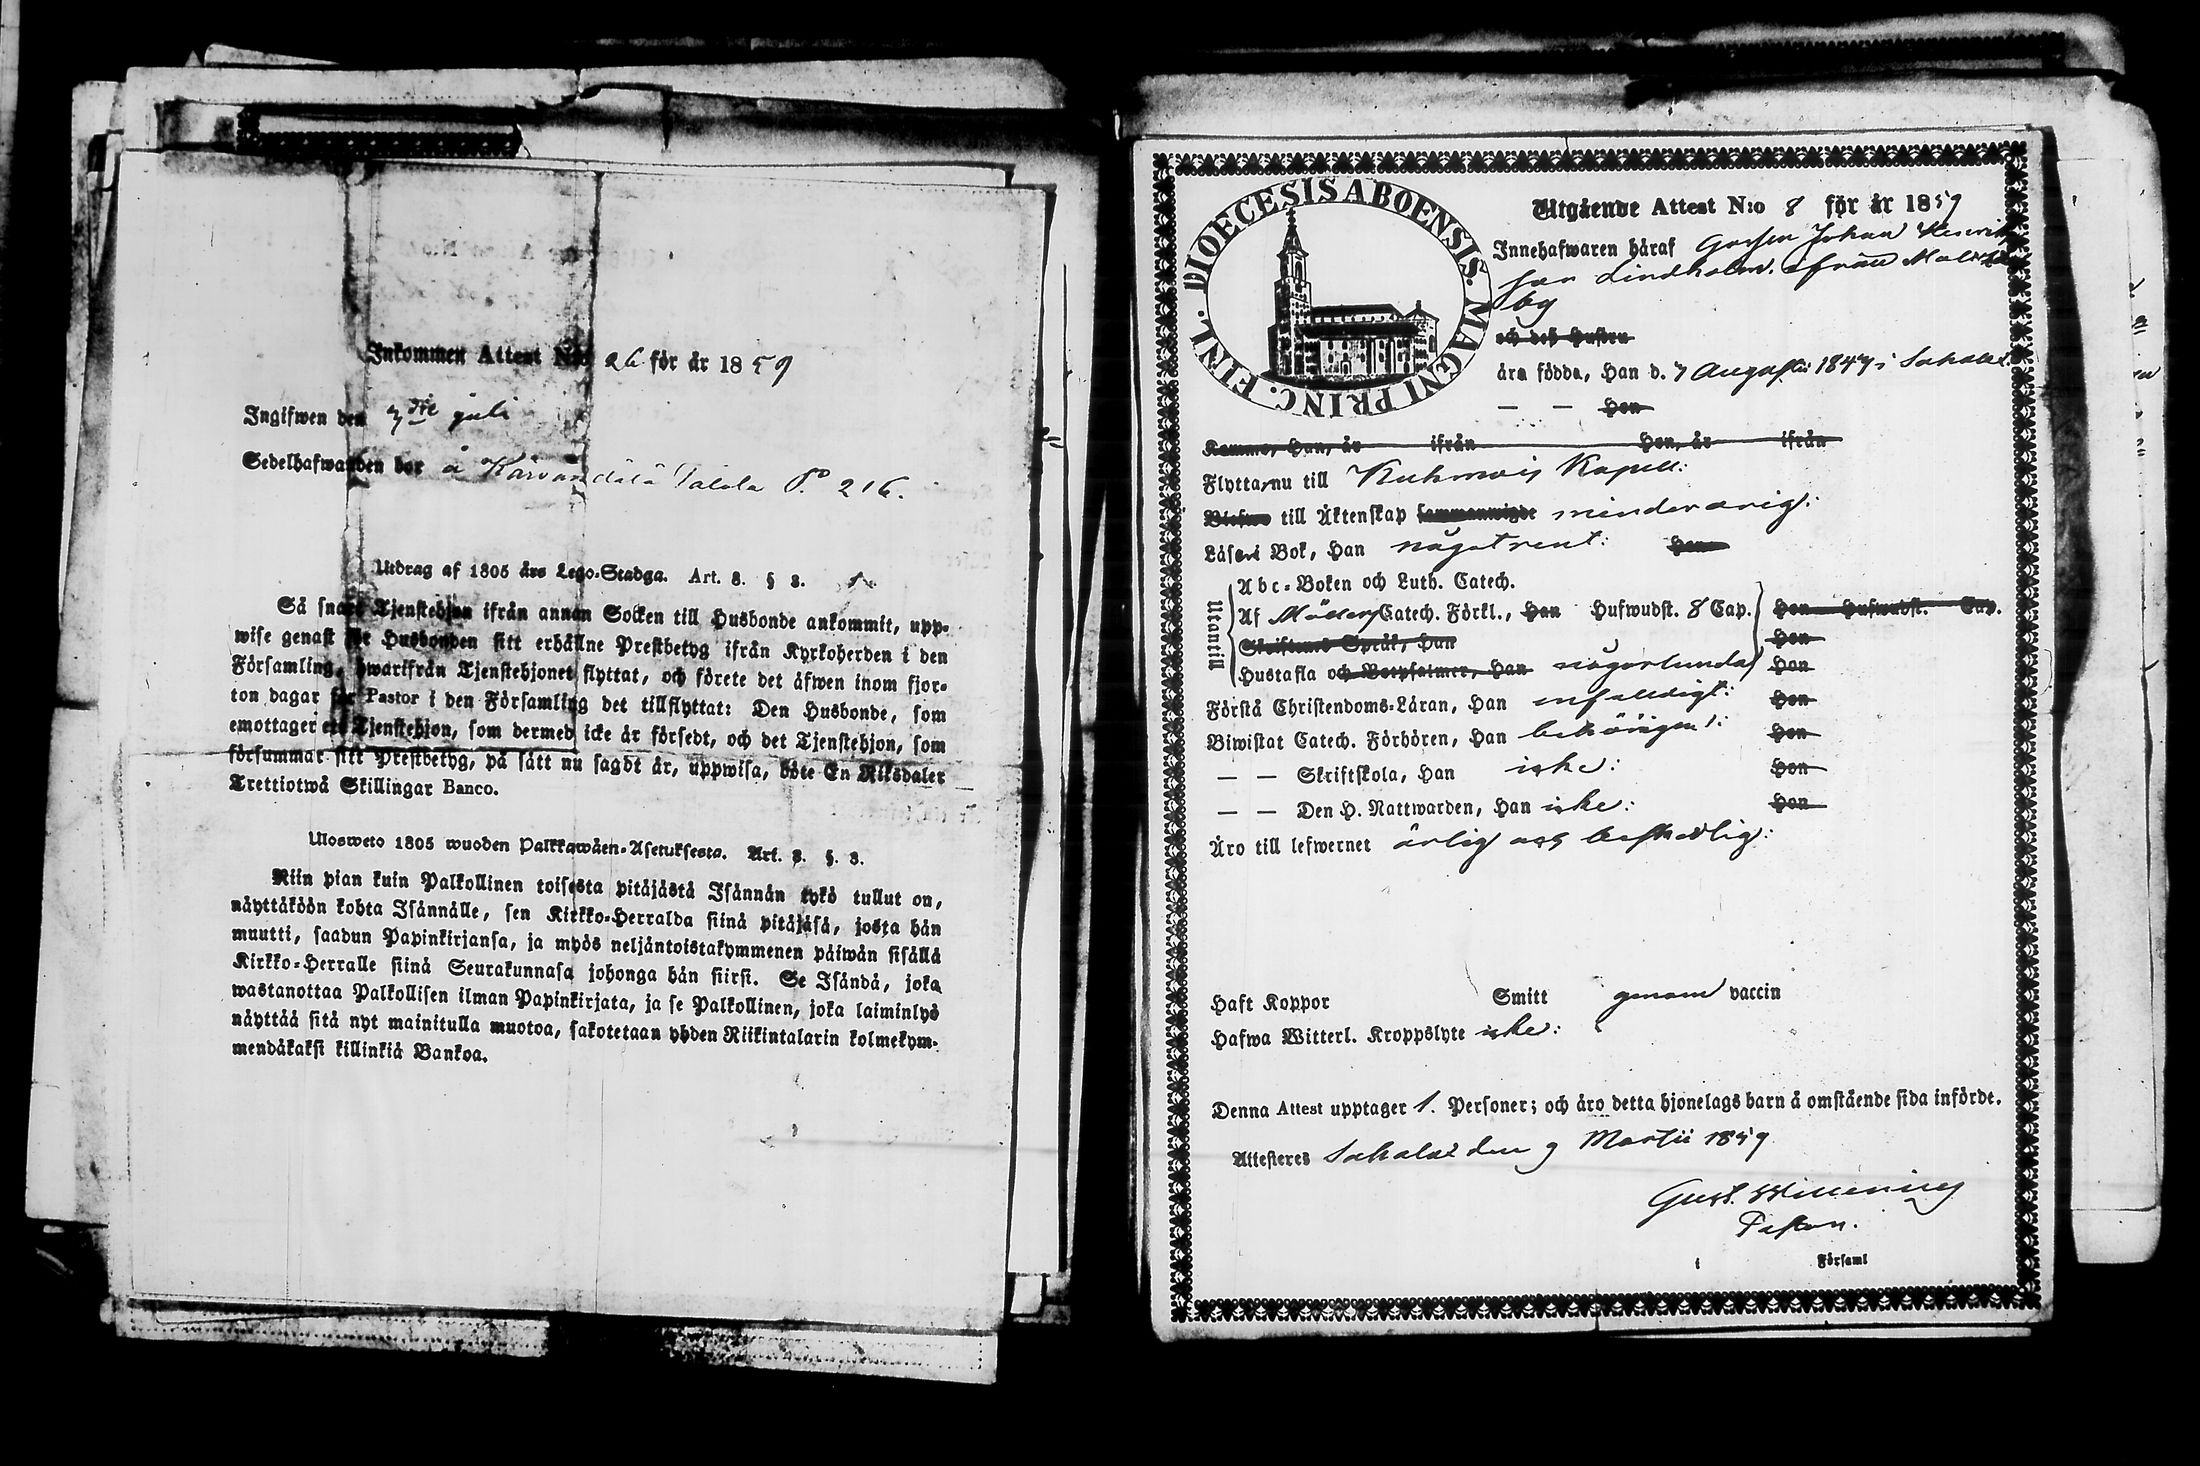 Inkommen Attest N:o 26 för år 1859
Ingifwen den 3die juli
Sedelhafwanden bor å Palola P. 216.
Utdrag af 1805 års Lego-Stadga. Art. 8. § 8.
Så snart Tjenstehjon ifrån annan Socken till Husbonde ankommit, upp-
wise genast för Husbonden sitt erhållne Prestbetyg ifrån Kyrkoherden i den
Församling, hwarifrån Tjenstehjonet flyttat, och förete det äfwen inom fjor-
ton dagar för Pastor i den Församling det tillflyttat: Den Husbonde, som
emottager ett Tjenstehjon, som dermed icke är försedt, och det Tjenstehjon, som
försummar sitt Prestbetyg, på sätt nu sagdt är, uppwisa, böte En Riksdaler
Trettiotwå Skillingar Banco.
Ulosweto 1805 wuoden Palkkawäen-Asetuksesta. Art. 8. §. 8.
Niin pian kuin Palkollinen toisesta pitäjästä Isännän tykö tullut on,
näyttäköön kohta Isännälle, sen Kirkko-Herralda siinä pitäjäsä, josta hän
muutti, saadun Papinkirjansa, ja myös neljäntoistakymmenen päiwän sisällä
Kirkko-Herralle siinä Seurakunnasa johonga hän siirsi. Se Isändä, joka
wastanottaa Palkollisen ilman Papinkirjata, ja se Palkollinen, joka laiminlyö
näyttää sitä nyt mainitulla muotoa, sakotetaan yhden Riikintalarin kolmekym-
mendäkaksi killinkiä Bankoa.
DIOECESIS ABOENSIS. MAGNI PRINC. FINL.
Utgående Attest N:o 8 för år 1859
Innehafwaren häraf Gossen Johan Henrik
son Lindholm. ifrån
by
och deß Hustru
äro födde, Han d. 7 Augusti 1847 i Sahalax
— — Hon
Kommo, Han, år ifrån Hon, år ifrån
Flytta nu till Kuhmois Kapell:
Blefwo till Äktenskap sammanwigde minderårig:
Läsa i Bok, Han något rent: Hon
Utantill
Abc-Boken och Luth. Catech.
Af Möllers Catech. Förkl., Han Hufwudst. 8 Cap. Hon Hufwudst. Cap.
Skriftens Språk, Han Hon
Hustafla och Botpsalmer, Han någorlunda Hon
Förstå Christendoms-Läran, Han enfaldigt: Hon
Biwistat Catech. Förhören, Han behörigen: Hon
— — Skriftskola, Han icke: Hon
— — Den H. Nattwarden, Han icke: Hon
Äro till lefwernet ärlig och beskedlig:
Haft Koppor Smitt genom vaccin
Hafwa Witterl. Kroppslyte icke:
Denna Attest upptager 1. Personer; och äro detta hjonelags barn å omstående sida införde.
Attesteres Sahalax den 9 Martii 1859
Gust. Willenius
Pastor.
i Församl